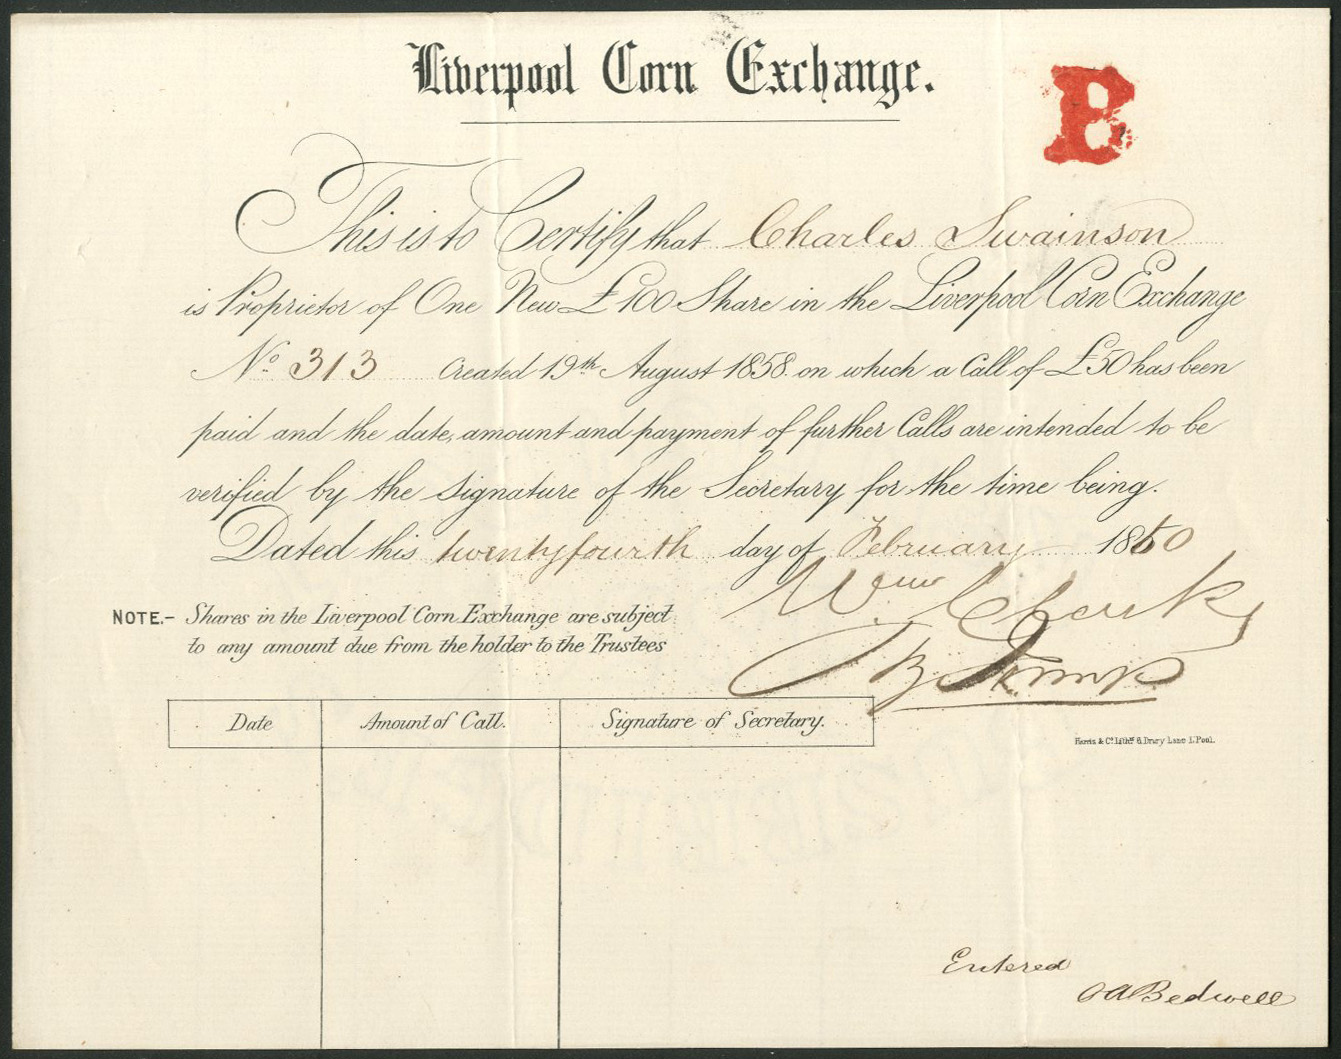 Liverpool Corn Exchange.
B
This is to Certify that Charles Swainson
is Proprietor of One New £100 Share in the Liverpool Corn Exchange
No. 313 Created 19th August 1858. on which a Call of £50 has been
paid and the date, amount and payment of further Calls are intended to be
verified by the Signature of the Secretary for the time being.
Dated this twentyfourth day of February 1860
Wm
NOTE.- Shares in the Liverpool Corn Exchange are subject
to any amount due from the holder to the Trustees
Date Amount of Call. Signature of Secretary.
Harris & Co. Lithrs. 6 Drury Lane L'Pool.
Entered
Bedwell